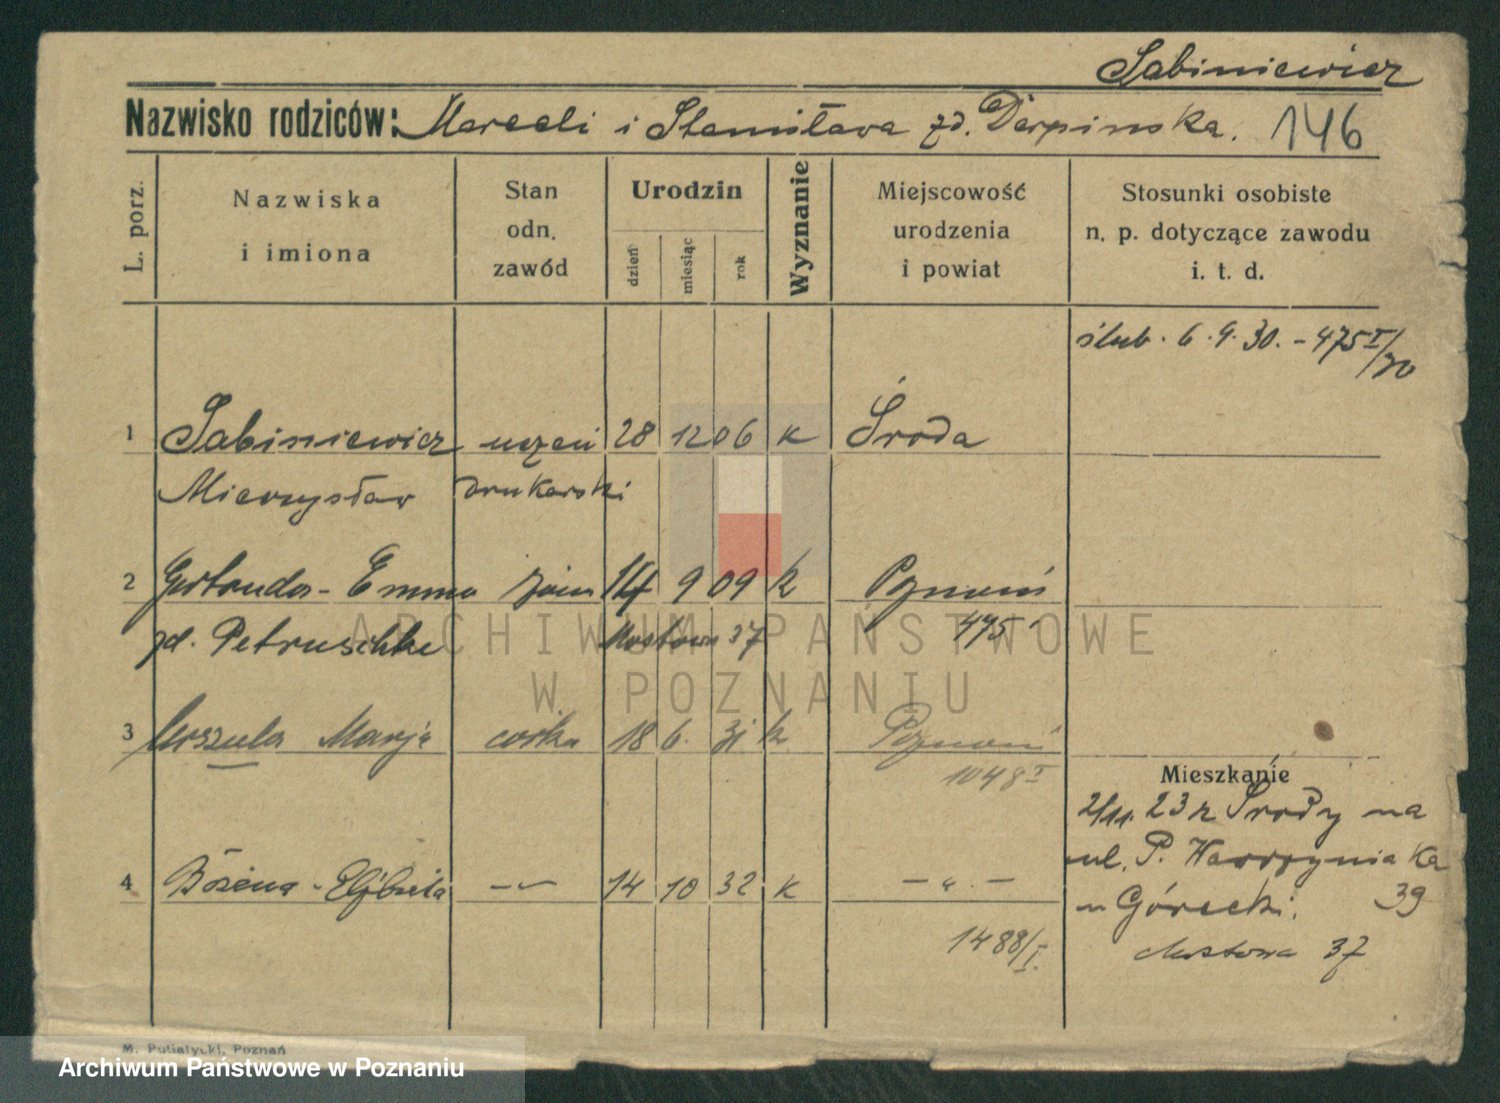 Sabiniewicz
Nazwisko rodziców: Marceli i Stanisława zd. Derpinska. 146
L. porz.
Nazwiska
i imiona
Stan
odn.
zawód
Urodzin
dzień
miesiąc
rok
Wyznanie
Miejscowość
urodzenia
i powiat
Stosunki osobiste
n. p. dotyczące zawodu
i. t. d.
ślub. 6.9.30. - 475 I/30
1 Sabiniewicz uczeń 28 12 06 k Środa
Mieczysław drukarski
2 Gertruda - Emma żona 14 9 09 k Poznań
zd. Petruschke Mostowa 37 475
3 Urszula Marja córka 18 6. 31 k Poznań
1048 I
Mieszkanie
2/11. 23 z Środy na
ul. P. Wawrzyniaka
39
m Górecki.
4 Bożena - Elżbieta -〃- 14 10 32 k -〃-
1488/I.
Mostowa 37
M. Putiatycki, Poznań
ARCHIWUM PAŃSTWOWE
W POZNANIU
Archiwum Państwowe w Poznaniu